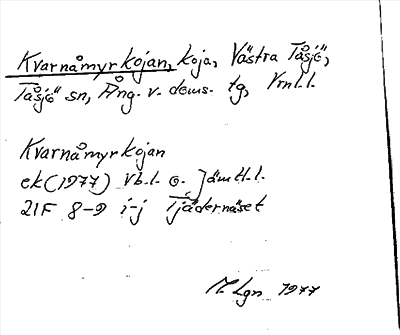 Kvarnåmyrkojan, koja, Västra Tåsjö,
Tåsjö sn, Ång. v. doms. tg,
Kvarnåmyrkojan
ek (1977) Vb.l. o. Jämtl.l.
21F 8-9 i-j Tjädernäset
Lgn 1977